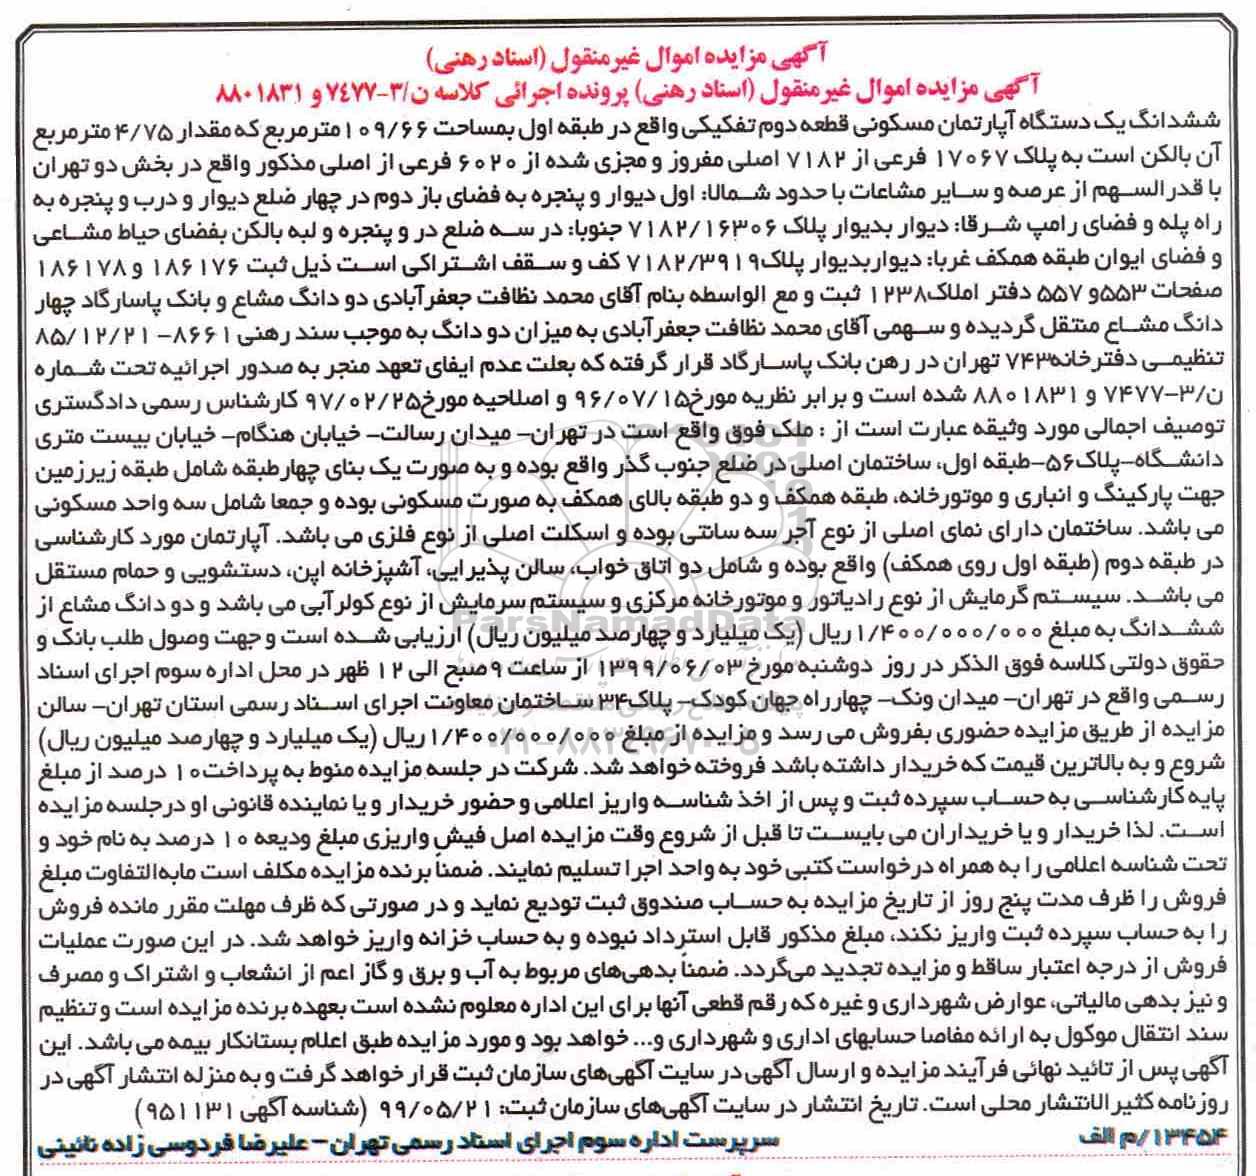 آگهی مزایده اموال غیرمنقول (اسناد رهنی)
آگهی مزایده اموال غیرمنقول (اسناد رهنی) پرونده اجرائی کلاسه ن/۳-۷٤۷۷ و ۸۸۰۱۸۳۱
ششدانگ یک دستگاه آپارتمان مسکونی قطعه دوم تفکیکی واقع در طبقه اول بمساحت ۱۰۹/۶۶ مترمربع که مقدار ۴/۷۵ مترمربع
آن بالکن است به پلاک ۱۷۰۶۷ فرعی از ۷۱۸۲ اصلی مفروز و مجزی شده از ۶۰۲۰ فرعی از اصلی مذکور واقع در بخش دو تهران
با قدرالسهم از عرصه و سایر مشاعات با حدود شمالا: اول دیوار و پنجره به فضای باز دوم در چهار ضلع دیوار و درب و پنجره به
راه پله و فضای رامپ شرقا: دیوار بدیوار پلاک ۷۱۸۲/۱۶۳۰۶ جنوبا: در سه ضلع در و پنجره و لبه بالکن بفضای حیاط مشاعی
و فضای ایوان طبقه همکف غربا: دیواربدیوار پلاک۷۱۸۲/۳۹۱۹ کف و سقف اشتراکی است ذیل ثبت ۱۸۶۱۷۶ و ۱۸۶۱۷۸
صفحات ۵۵۳و ۵۵۷ دفتر املاک۱۲۳۸ ثبت و مع الواسطه بنام آقای محمد نظافت جعفرآبادی دو دانگ مشاع و بانک پاسارگاد چهار
دانگ مشاع منتقل گردیده و سهمی آقای محمد نظافت جعفرآبادی به میزان دو دانگ به موجب سند رهنی ۸۶۶۱- ۸۵/۱۲/۲۱
تنظیمی دفترخانه۷۴۳ تهران در رهن بانک پاسارگاد قرار گرفته که بعلت عدم ایفای تعهد منجر به صدور اجرائیه تحت شماره
ن/۳-۷۴۷۷ و ۸۸۰۱۸۳۱ شده است و برابر نظریه مورخ۹۶/۰۷/۱۵ و اصلاحیه مورخ۹۷/۰۲/۲۵ کارشناس رسمی دادگستری
توصیف اجمالی مورد وثیقه عبارت است از : ملک فوق واقع است در تهران- میدان رسالت- خیابان هنگام- خیابان بیست متری
دانشگاه-پلاک۵۶-طبقه اول، ساختمان اصلی در ضلع جنوب گذر واقع بوده و به صورت یک بنای چهارطبقه شامل طبقه زیرزمین
جهت پارکینگ و انباری و موتورخانه، طبقه همکف و دو طبقه بالای همکف به صورت مسکونی بوده و جمعا شامل سه واحد مسکونی
می باشد. ساختمان دارای نمای اصلی از نوع آجر سه سانتی بوده و اسکلت اصلی از نوع فلزی می باشد. آپارتمان مورد کارشناسی
در طبقه دوم (طبقه اول روی همکف) واقع بوده و شامل دو اتاق خواب، سالن پذیرایی، آشپزخانه اپن، دستشویی و حمام مستقل
می باشد. سیستم گرمایش از نوع رادیاتور و موتورخانه مرکزی و سیستم سرمایش از نوع کولرآبی می باشد و دو دانگ مشاع از
ششدانگ به مبلغ ۱/۴۰۰/۰۰۰/۰۰۰ریال (یک میلیارد و چهارصد میلیون ریال) ارزیابی شده است و جهت وصول طلب بانک و
حقوق دولتی کلاسه فوق الذکر در روز دوشنبه مورخ ۱۳۹۹/۰۶/۰۳ از ساعت ۹صبح الی ۱۲ ظهر در محل اداره سوم اجرای اسناد
رسمی واقع در تهران- میدان ونک- چهارراه جهان کودک- پلاک۳۴ ساختمان معاونت اجرای اسناد رسمی استان تهران- سالن
مزایده از طریق مزایده حضوری بفروش می رسد و مزایده از مبلغ ۱/۴۰۰/۰۰۰/۰۰۰ریال (یک میلیارد و چهارصد میلیون ریال)
شروع و به بالاترین قیمت که خریدار داشته باشد فروخته خواهد شد. شرکت در جلسه مزایده منوط به پرداخت۱۰ درصد از مبلغ
پایه کارشناسی به حساب سپرده ثبت و پس از اخذ شناسه واریز اعلامی و حضور خریدار و یا نماینده قانونی او درجلسه مزایده
است. لذا خریدار و یا خریداران می بایست تا قبل از شروع وقت مزایده اصل فیش واریزی مبلغ ودیعه ۱۰ درصد به نام خود و
تحت شناسه اعلامی را به همراه درخواست کتبی خود به واحد اجرا تسلیم نمایند. ضمناً برنده مزایده مکلف است مابه‌التفاوت مبلغ
فروش را ظرف مدت پنج روز از تاریخ مزایده به حساب صندوق ثبت تودیع نماید و در صورتی که ظرف مهلت مقرر مانده فروش
را به حساب سپرده ثبت واریز نکند، مبلغ مذکور قابل استرداد نبوده و به حساب خزانه واریز خواهد شد. در این صورت عملیات
فروش از درجه اعتبار ساقط و مزایده تجدید می‌گردد. ضمناً بدهی‌های مربوط به آب و برق و گاز اعم از انشعاب و اشتراک و مصرف
و نیز بدهی مالیاتی، عوارض شهرداری و غیره که رقم قطعی آنها برای این اداره معلوم نشده است بعهده برنده مزایده است و تنظیم
سند انتقال موکول به ارائه مفاصا حسابهای اداری و شهرداری و... خواهد بود و مورد مزایده طبق اعلام بستانکار بیمه می باشد. این
آگهی پس از تائید نهائی فرآیند مزایده و ارسال آگهی در سایت آگهی‌های سازمان ثبت قرار خواهد گرفت و به منزله انتشار آگهی در
روزنامه کثیرالانتشار محلی است. تاریخ انتشار در سایت آگهی‌های سازمان ثبت: ۹۹/۰۵/۲۱ (شناسه آگهی ۹۵۱۱۳۱)
۱۳۴۵۴/م الف سرپرست اداره سوم اجرای اسناد رسمی تهران – علیرضا فردوسی زاده نائینی
ParsNamadData
۰۲۱-۸۸۳۴۹۶۷۰-۵